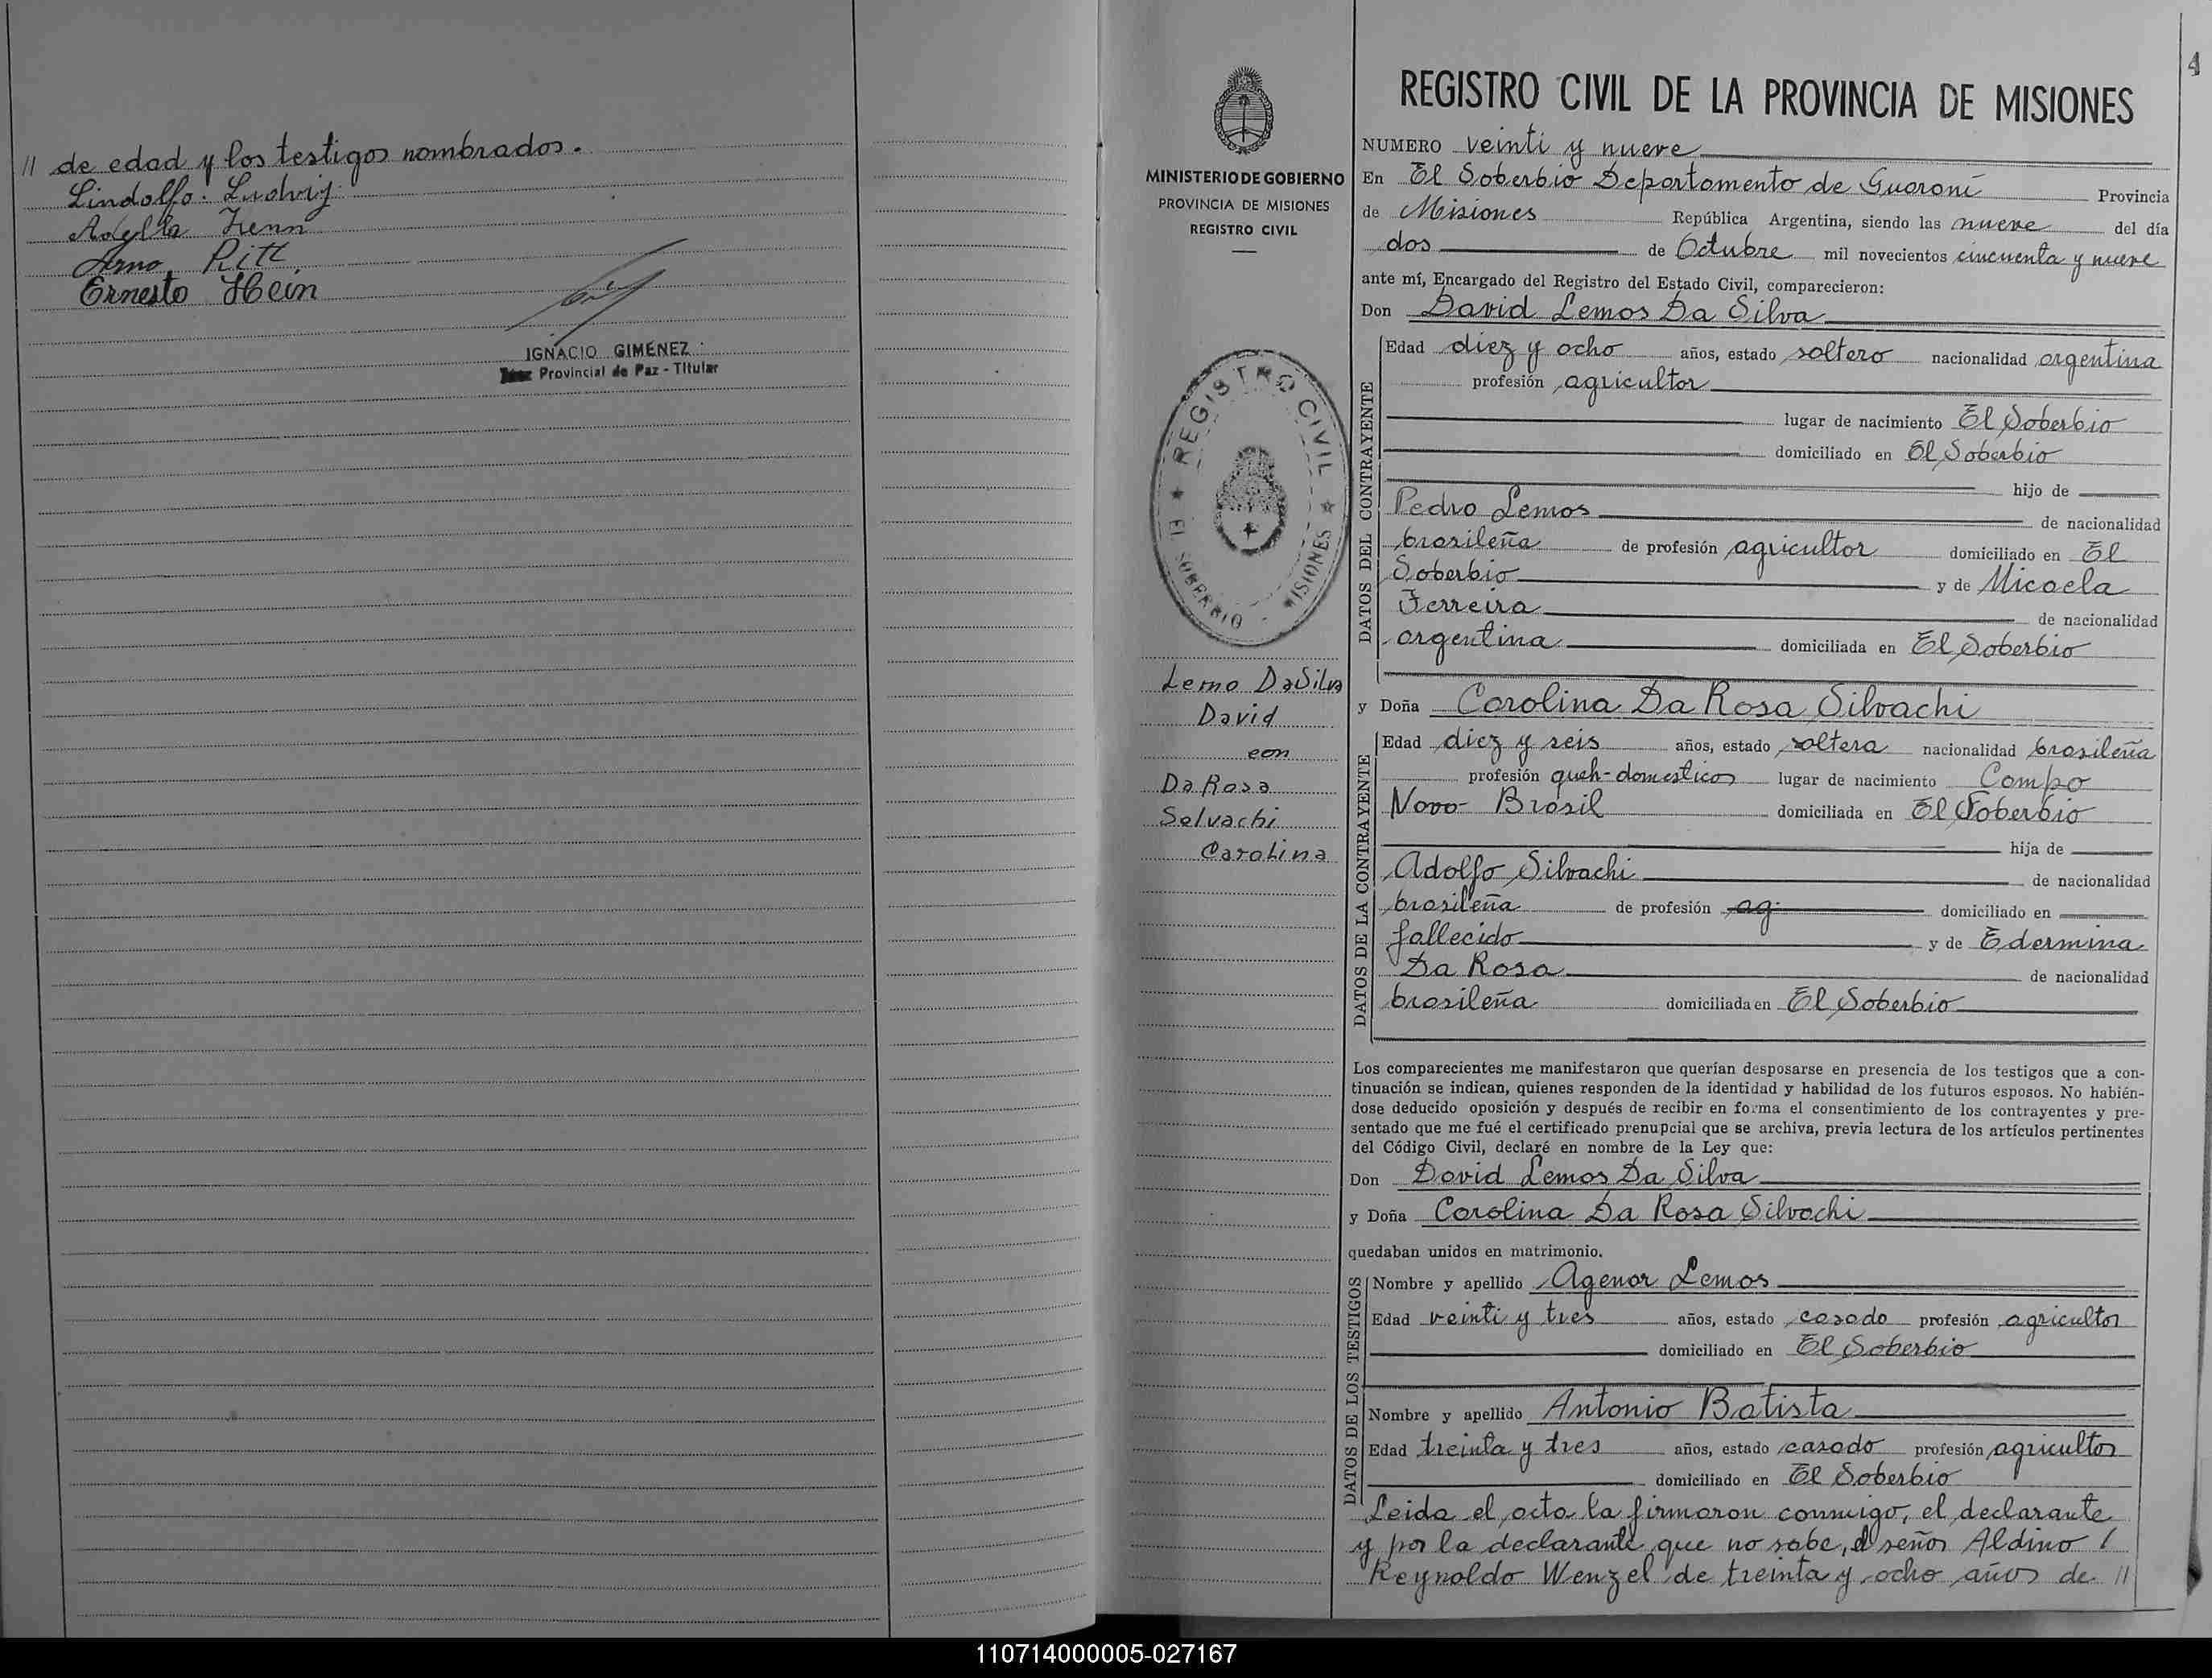 // de edad y los testigos nombrados.
Lindolfo Ludwig
Adella Frenn
Arno Ritt
Ernesto Hein
IGNACIO GIMENEZ
Juez Provincial de Paz - Titular
MINISTERIO DE GOBIERNO
PROVINCIA DE MISIONES
REGISTRO CIVIL
REGISTRO CIVIL
EL SOBERBIO
MISIONES
Lemo DaSilva
David
con
Da Rosa
Selvachi
Carolina
4
REGISTRO CIVIL DE LA PROVINCIA DE MISIONES
NUMERO veinti y nueve
En El Soberbio Departamento de Guaraní Provincia
de Misiones República Argentina, siendo las nueve del día
dos de Octubre mil novecientos cincuenta y nueve
ante mí, Encargado del Registro del Estado Civil, comparecieron:
Don David Lemos Da Silva
DATOS DEL CONTRAYENTE
Edad diez y ocho años, estado soltero nacionalidad argentina
profesión agricultor
lugar de nacimiento El Soberbio
domiciliado en El Soberbio
hijo de
Pedro Lemos de nacionalidad
brasileña de profesión agricultor domiciliado en El
Soberbio y de Micaela
Ferreira de nacionalidad
argentina domiciliada en El Soberbio
y Doña Carolina Da Rosa Silvachi
DATOS DE LA CONTRAYENTE
Edad diez y seis años, estado soltera nacionalidad brasileña
profesión queh-domesticos lugar de nacimiento Campo
Novo Brasil domiciliada en El Soberbio
hija de
Adolfo Silvachi de nacionalidad
brasileña de profesión ag. domiciliado en
fallecido y de Edermina
Da Rosa de nacionalidad
brasileña domiciliada en El Soberbio
Los comparecientes me manifestaron que querían desposarse en presencia de los testigos que a con-
tinuación se indican, quienes responden de la identidad y habilidad de los futuros esposos. No habién-
dose deducido oposición y después de recibir en forma el consentimiento de los contrayentes y pre-
sentado que me fué el certificado prenupcial que se archiva, previa lectura de los artículos pertinentes
del Código Civil, declaré en nombre de la Ley que:
Don David Lemos Da Silva
y Doña Carolina Da Rosa Silvachi
quedaban unidos en matrimonio.
DATOS DE LOS TESTIGOS
Nombre y apellido Agenor Lemos
Edad veinti y tres años, estado casado profesión agricultor
domiciliado en El Soberbio
Nombre y apellido Antonio Batista
Edad treinta y tres años, estado casado profesión agricultor
domiciliado en El Soberbio
Leida el acta la firmaron conmigo, el declarante
y por la declarante que no sabe, el señor Aldino /
Reynoldo Wenzel de treinta y ocho años de //
110714000005-027167